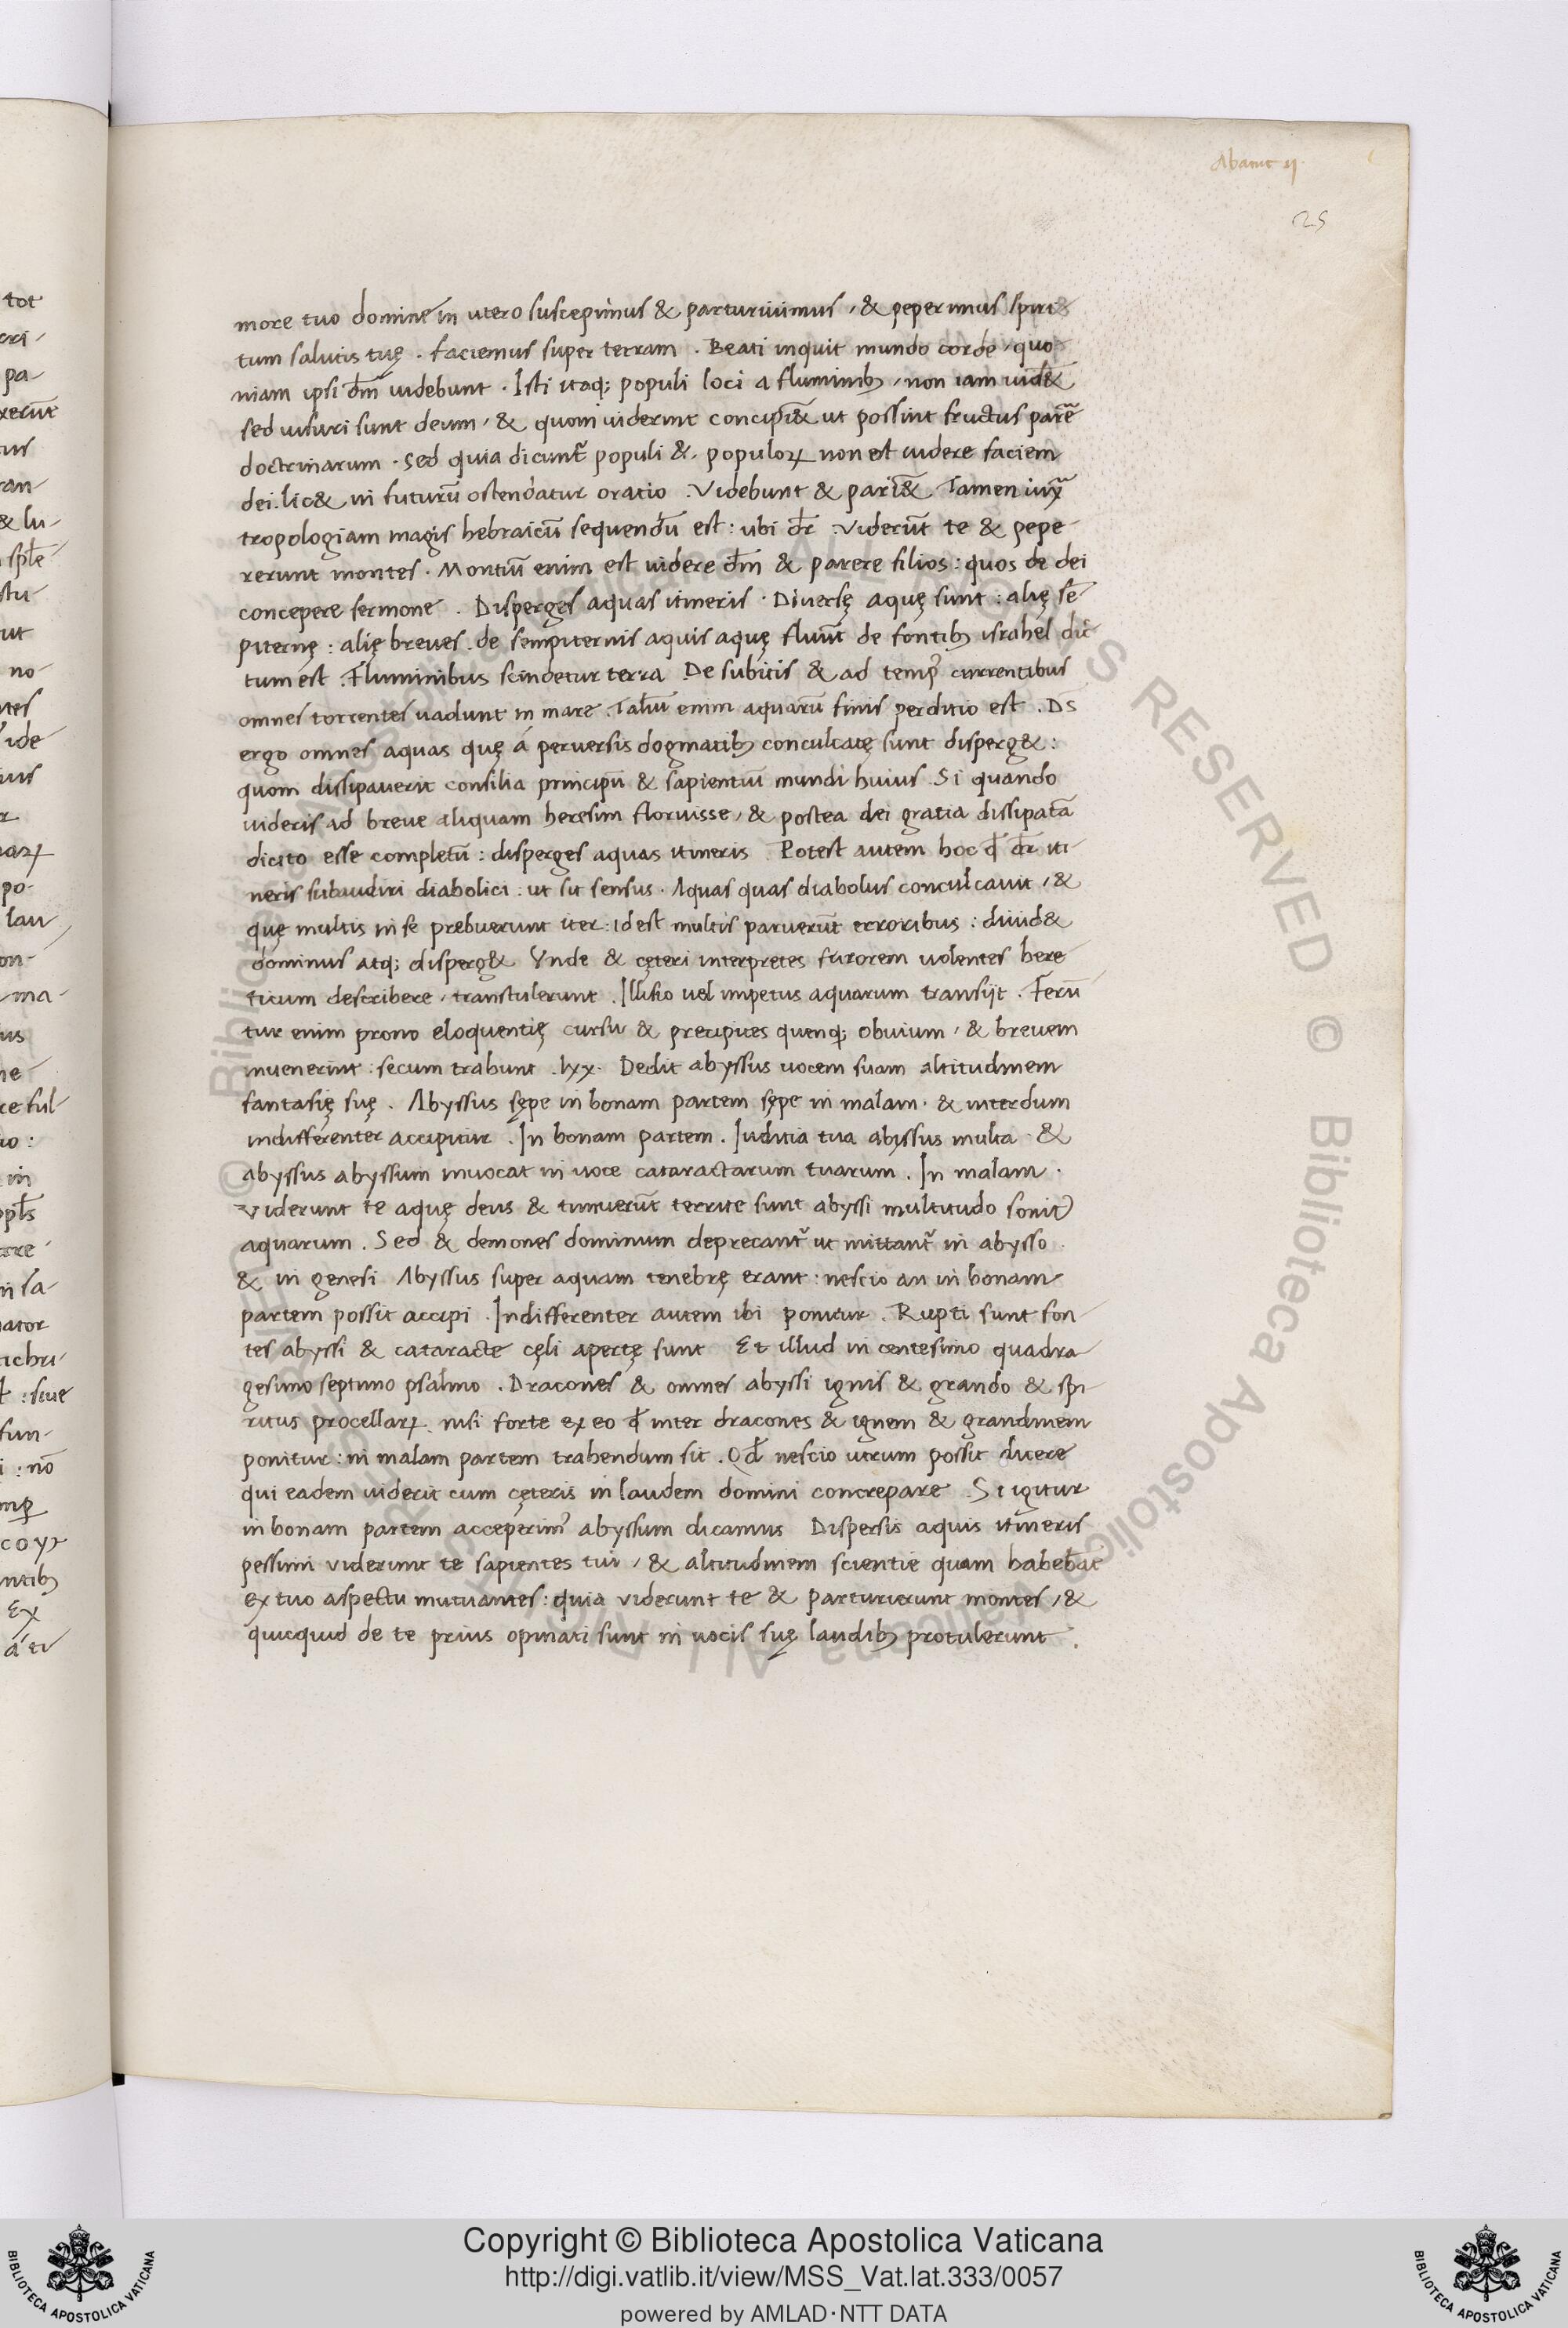 Abacuc ij
25
more tuo domine in utero suscepimus & parturiuimus, & peperimus spiri
tum salutis tuę. faciemus super terram. Beati inquit mundo corde, quo
niam ipsi dm̄ uidebunt. Isti itaq; populi loci a fluminib, non iam uid&
sed uisuri sunt deum, & quom uiderint concipi& ut possint fructus parē
doctrinarum. Sed quia dicunt᷑ populi &. populoꝝ non est uidere faciem
dei. lic& in futurū ostendatur oratio. Videbunt & pari&. Tamen iuxa
tropologiam magis hebraicū sequendū est: ubi dr̄. Viderūt te & pepe
rerunt montes. Montiū enim est uidere dm̄ & parere filios: quos de dei
concepere sermone. Disperges aquas itineris. Diuersę aquę sunt: alię sē
piternę: alię breues. de sempiternis aquis aquę fluūt de fontib israhel dic
tum est. Fluminibus scindetur terra De subitis & ad temp᾽ currentibus
omnes torrentes uadunt in mare. Taliū enim aquarū finis perditio est. DS
ergo omnes aquas quę á peruersis dogmatib conculcatę sunt disperg&:
quom dissipauerit consilia principū & sapientiū mundi huius Si quando
uideris ad breue aliquam heresim floruisse, & postea dei gratia dissipatā
dicito esse completū: disperges aquas itineris. Potest autem hoc qđ dr̄ iti
neris subaudiri diabolici: ut sit sensus. Aquas quas diabolus conculcauit, &
quę multis in se prebuerunt iter: id est multis paruerūt erroribus: diuid&
dominus atq; disperg& Vnde & cęteri interpretes furorem uolentes here
ticum describere, transtulerunt. Illiso uel impetus aquarum transijt. Ferū
tur enim prono eloquentię cursu & precipites quenq; obuium, & breuem
inuenerint: secum trahunt. lxx. Dedit abyssus uocem suam altitudinem
fantasię suę. Abyssus sępe in bonam partem sępe in malam. & interdum
indifferenter accipitur. In bonam partem. Iuditia tua abyssus multa. &
abyssus abyssum inuocat in uoce cataractarum tuarum. In malam.
Viderunt te aquę deus & timuerūt territe sunt abyssi multitudo sonit᾽
aquarum. Sed & demones dominum deprecant᷑ ut mittant᷑ in abysso.
& in genesi Abyssus super aquam tenebrę erant: nescio an in bonam
partem possit accipi. Indifferenter autem ibi ponitur. Rupti sunt fon
tes abyssi & cataracte cęli apertę sunt Et illud in centesimo quadra
gesimo septimo psalmo. Dracones & omnes abyssi ignis & grando & spi
ritus procellaꝝ. nisi forte ex eo qđ inter dracones & ignem & grandinem
ponitur: in malam partem trahendum sit. Qđ nescio utrum possit dicere
qui eadem uiderit cum cęteris in laudem domini concrepare. Si igitur
in bonam partem acceperim᾽ abyssum dicamus Dispersis aquis itineris
pessimi viderunt te sapientes tui, & altitudinem scientie quam habebāt
ex tuo aspectu mutuantes: quia viderunt te & parturierunt montes, &
quicquid de te prius opinati sunt in uocis suę laudib protulerunt.
Copyright © Biblioteca Apostolica Vaticana
http://digi.vatlib.it/view/MSS_Vat.lat.333/0057
powered by AMLAD·NTT DATA
BIBLIOTECA APOSTOLICA VATICANA
BIBLIOTECA APOSTOLICA VATICANA